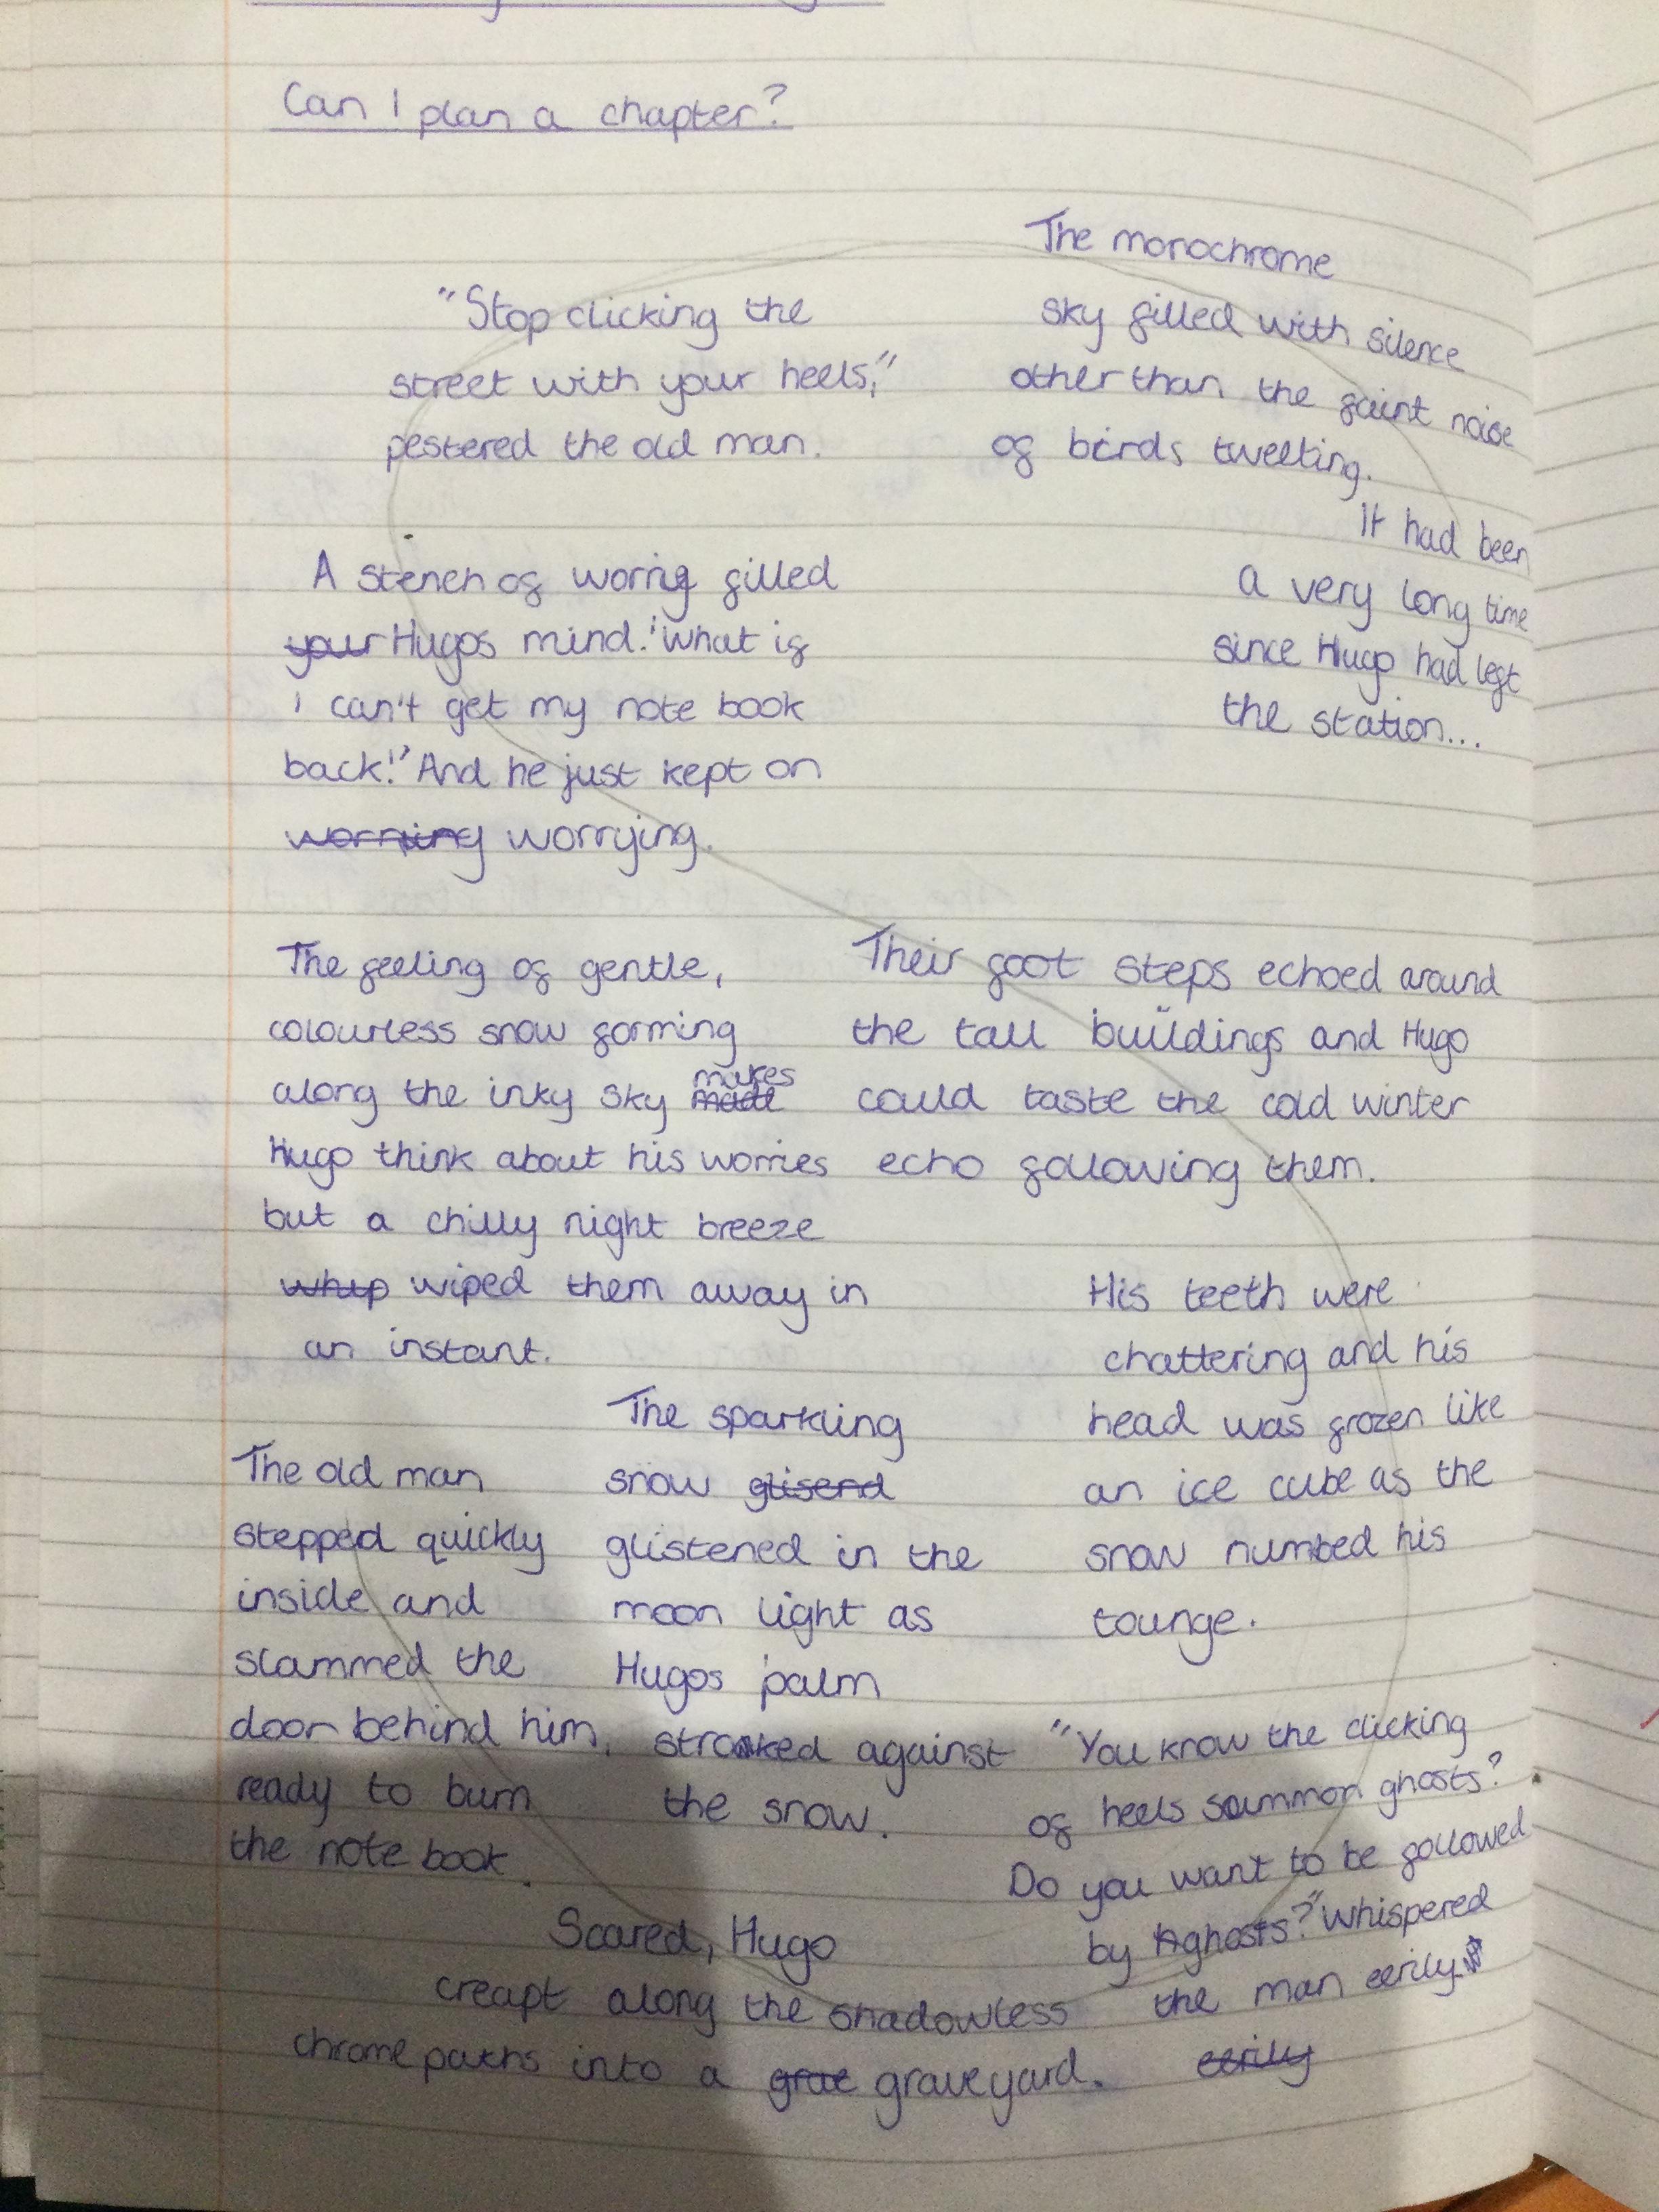 Can I plan a chapter?
"Stop clicking the
street with your heels,"
pestered the old man.
The monochrome
sky filled with silence
other than the faint noise
of birds tweeting.
It had been
a very long time
since Hugo had left
the station...
A stench of worry filled
your Hugos mind. 'What if
I can't get my note book
back!' And he just kept on
worrying.
The feeling of gentle,
colourless snow forming
along the inky sky made makes
Hugo think about his worries
but a chilly night breeze
whip wiped them away in
an instant.
Their foot steps echoed around
the tall buildings and Hugo
could taste the cold winter
echo following them.
His teeth were
chattering and his
head was frozen like
an ice cube as the
snow numbed his
tounge.
The sparkling
snow glisend
glistened in the
moon light as
Hugos palm
stroked against
the snow.
The old man
stepped quickly
inside and
slammed the
door behind him,
ready to burn
the note book.
"You know the clicking
of heels summon ghosts?
Do you want to be followed
by ghosts?" whispered
the man eerily
eerily
Scared, Hugo
creapt along the shadowless
chrome paths into a grae graveyard.